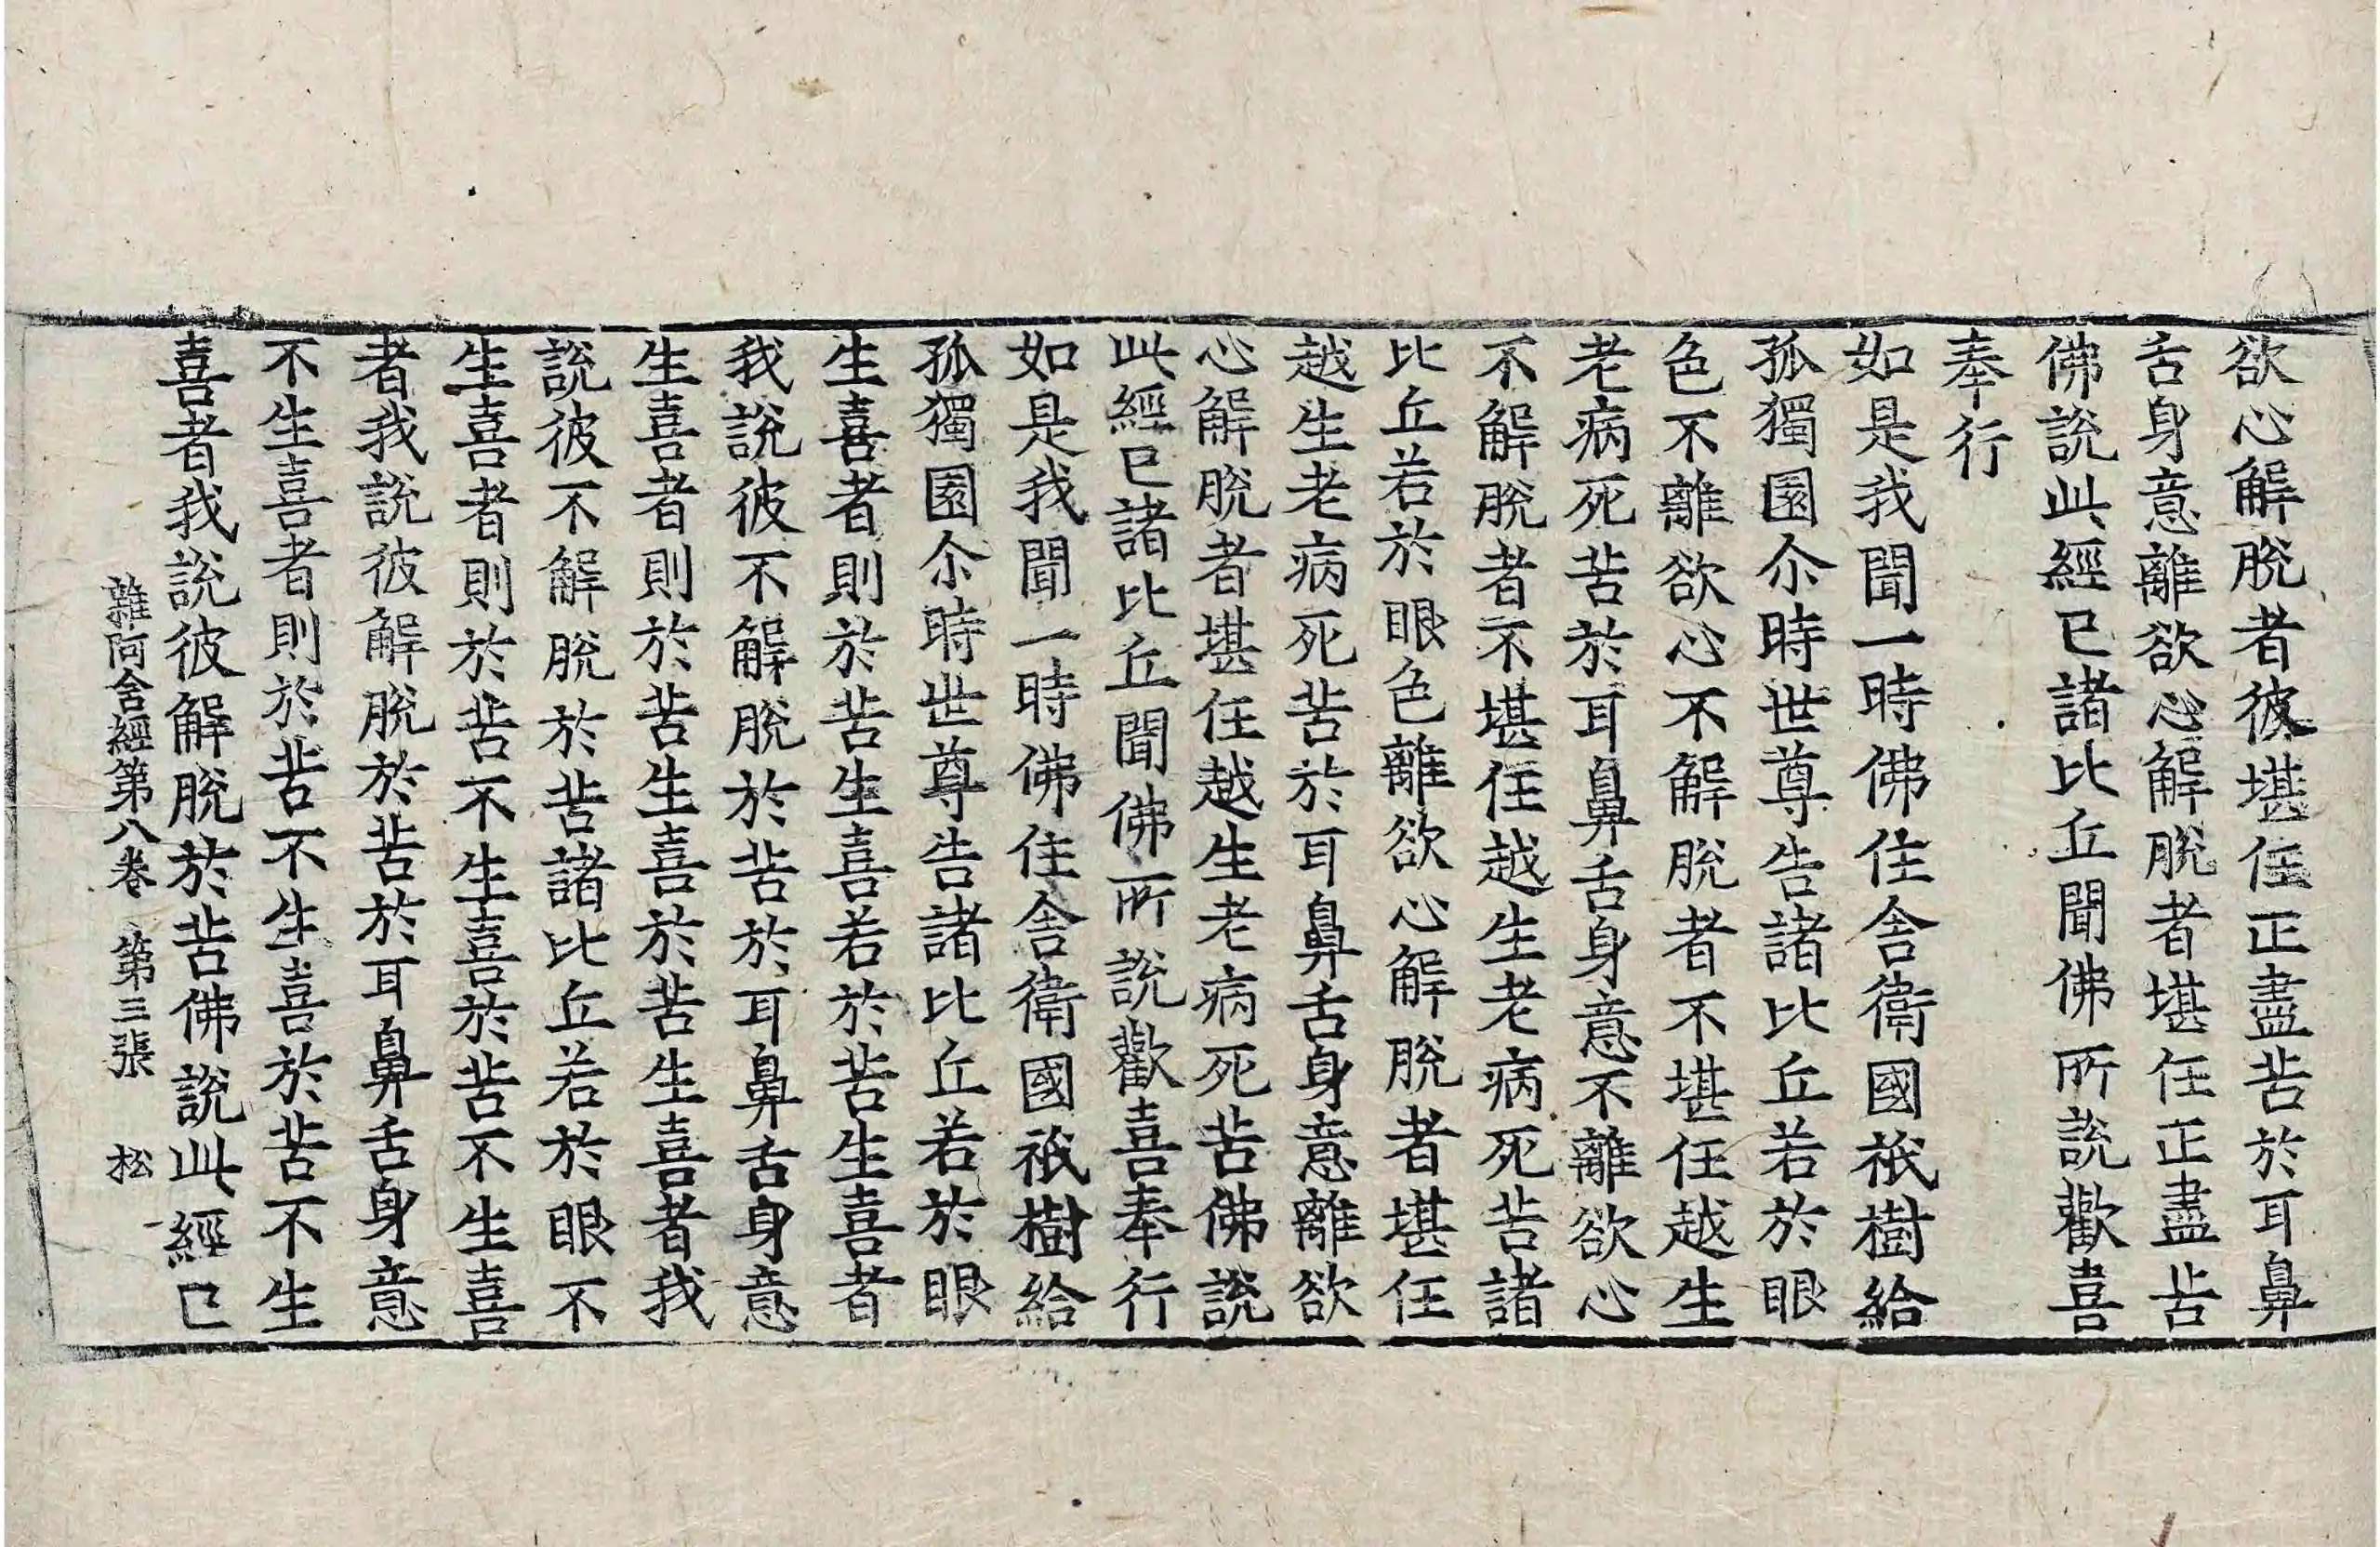 欲心解脫者彼堪任正盡苦於耳鼻
舌身意離欲心解脫者堪任正盡苦
佛說此經已諸比丘聞佛所說歡喜
奉行
如是我聞一時佛住舍衛國祇樹給
孤獨園尒時世尊告諸比丘若於眼
色不離欲心不解脫者不堪任越生
老病死苦於耳鼻舌身意不離欲心
不解脫者不堪任越生老病死苦諸
比丘若於眼色離欲心解脫者堪任
越生老病死苦於耳鼻舌身意離欲
心解脫者堪任越生老病死苦佛說
此經已諸比丘聞佛所說歡喜奉行
如是我聞一時佛住舍衛國祇樹給
孤獨園尒時世尊告諸比丘若於眼
生喜者則於苦生喜若於苦生喜者
我說彼不解脫於苦於耳鼻舌身意
生喜者則於苦生喜於苦生喜者我
說彼不解脫於苦諸比丘若於眼不
生喜者則於苦不生喜於苦不生喜
者我說彼解脫於苦於耳鼻舌身意
不生喜者則於苦不生喜於苦不生
喜者我說彼解脫於苦佛說此經已
雜阿含經第八卷 第三張 松